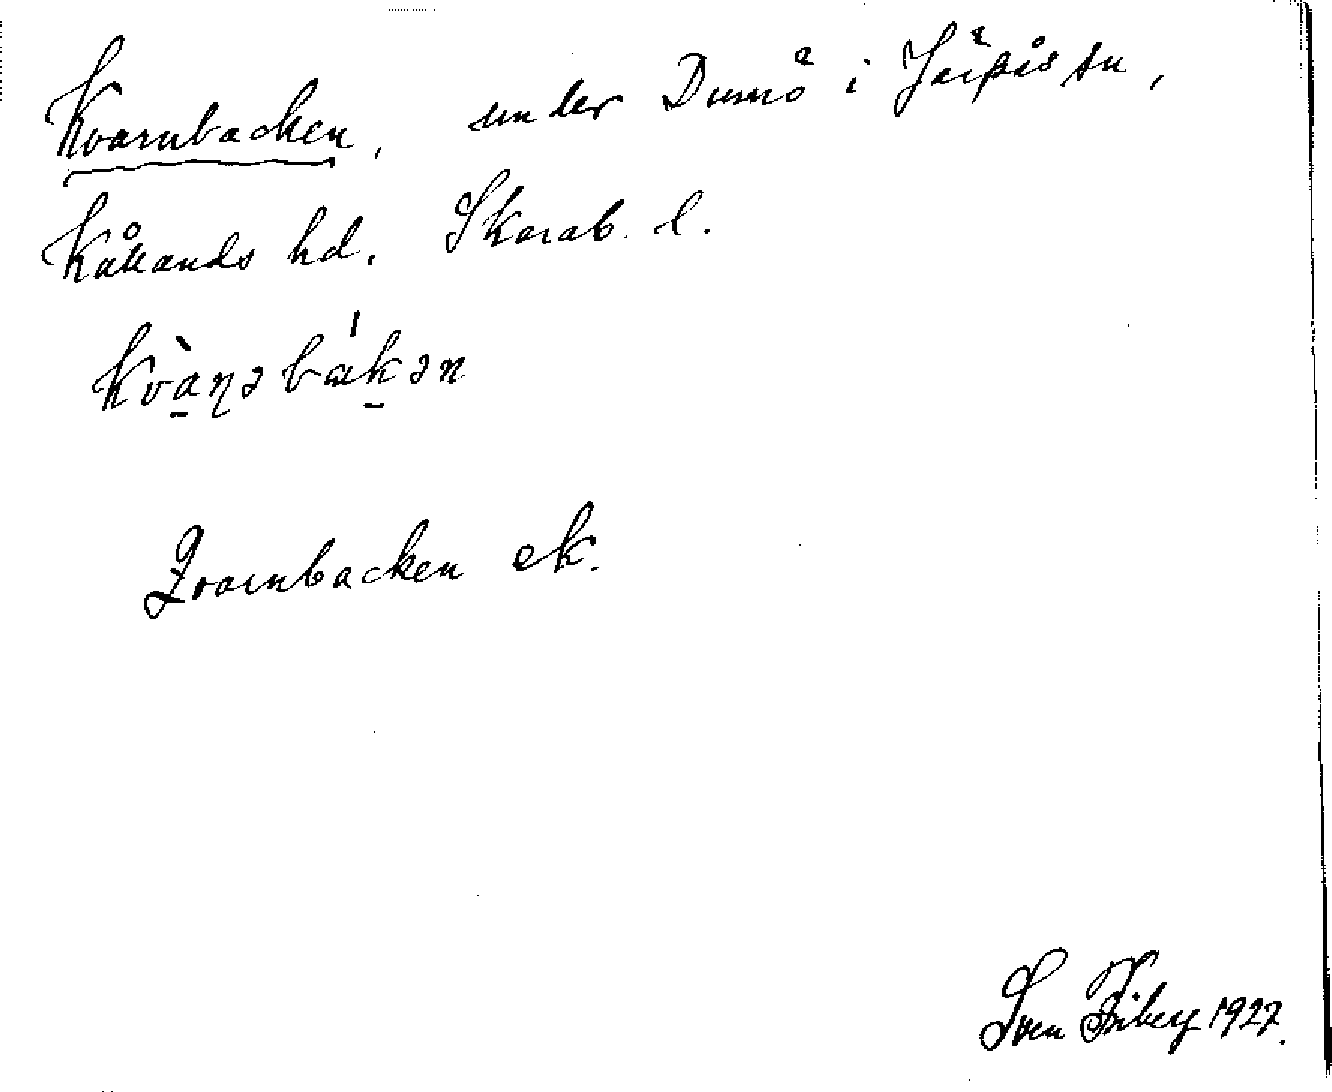 Kvarnbacken, under Dumö i Järpås sn,
Kållands hd. Skarab. l.
kvàɳəbákən
Qvarnbacken ek.
Sven Friberg 1927.